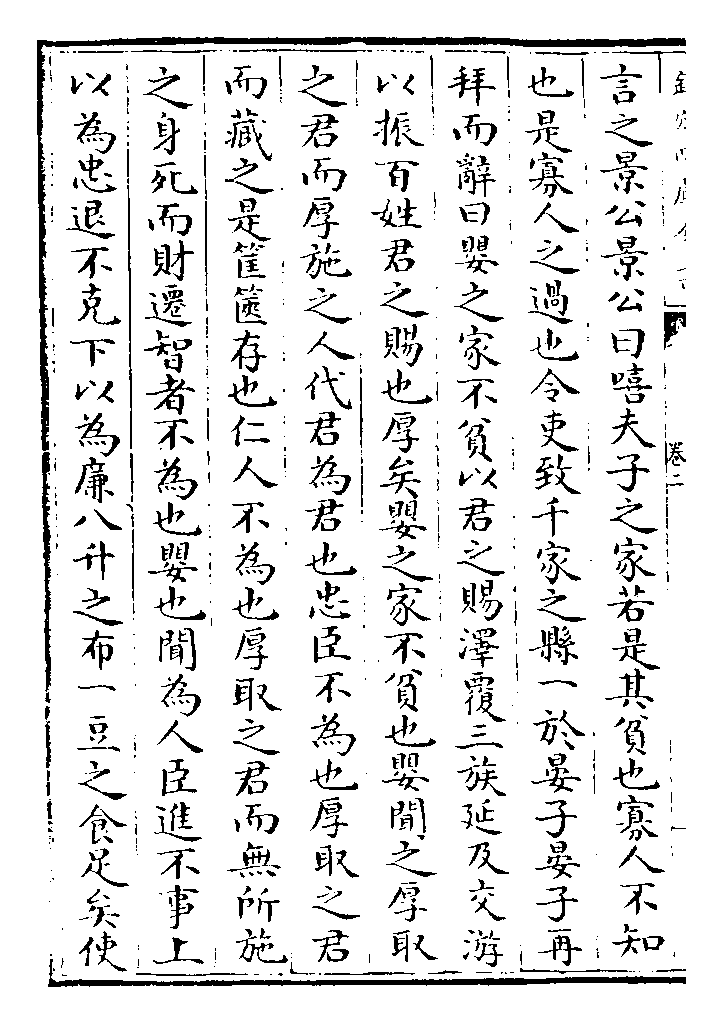 言之景公景公曰嘻夫子之家若是其貧也寡人不知
也是寡人之過也令吏致千家之縣一於晏子晏子再
拜而辭曰嬰之家不貧以君之賜澤覆三族延及交游
以振百姓君之賜也厚矣嬰之家不貧也嬰聞之厚取
之君而厚施之人代君為君也忠臣不為也厚取之君
而藏之是筐篋存也仁人不為也厚取之君而無所施
之身死而財遷智者不為也嬰也聞為人臣進不事上
以為忠退不克下以為廉八升之布一豆之食足矣使
卷二